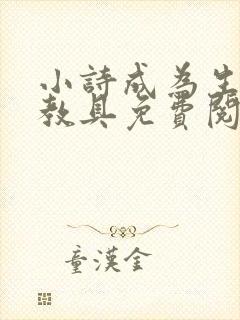 小詩成為生
教具免費閱
童漢金